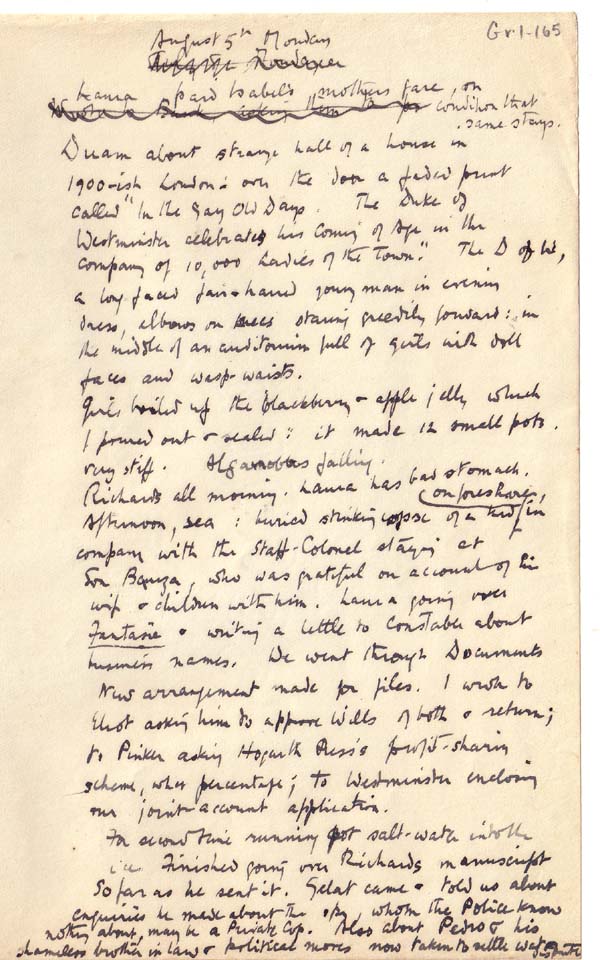 Gr.1-165
August 5th Monday
Laura paid Isabel's mothers fare, on
condition that
same stays.
Dream about strange hall of a house in
1900-ish London: over the door a faded print
called "In the Gay Old Days. The Duke of
Westminster celebrates his Coming of Age in the
company of 10,000 Ladies of the Town." The D of W,
a long faced fair-haired young man in evening
dress, elbows on knees staring greedily forward: in
the middle of an auditorium full of girls with doll
faces and wasp-waists.
Girls boiled up the blackberry & apple jelly which
I poured out & sealed: it made 12 small pots.
very stiff. Algarrobas falling.
Richards all morning. Laura has bad stomach.
Afternoon, sea: buried stinking corpse of a kid on foreshore, in
company with the Staff-Colonel staying at
Son Bauza, who was grateful on account of his
wife & children with him. Laura going over
Fantasia & writing a letter to Constable about
business names. We went through Documents
New arrangement made for files. I wrote to
Eliot asking him to approve Wills of both & return;
to Pinker asking Hogarth Press's profit-sharing
scheme, what percentage; to Westminster enclosing
our joint-account application.
For second time running got salt-water into the
ice. Finished going over Richards manuscript
so far as he sent it. Gelat came & told us about
enquiries he made about the spy, whom the Police know
nothing about, may be a Private Cop. Also about Pedro & his
shameless brother in law & political moves now taken to settle water dispute